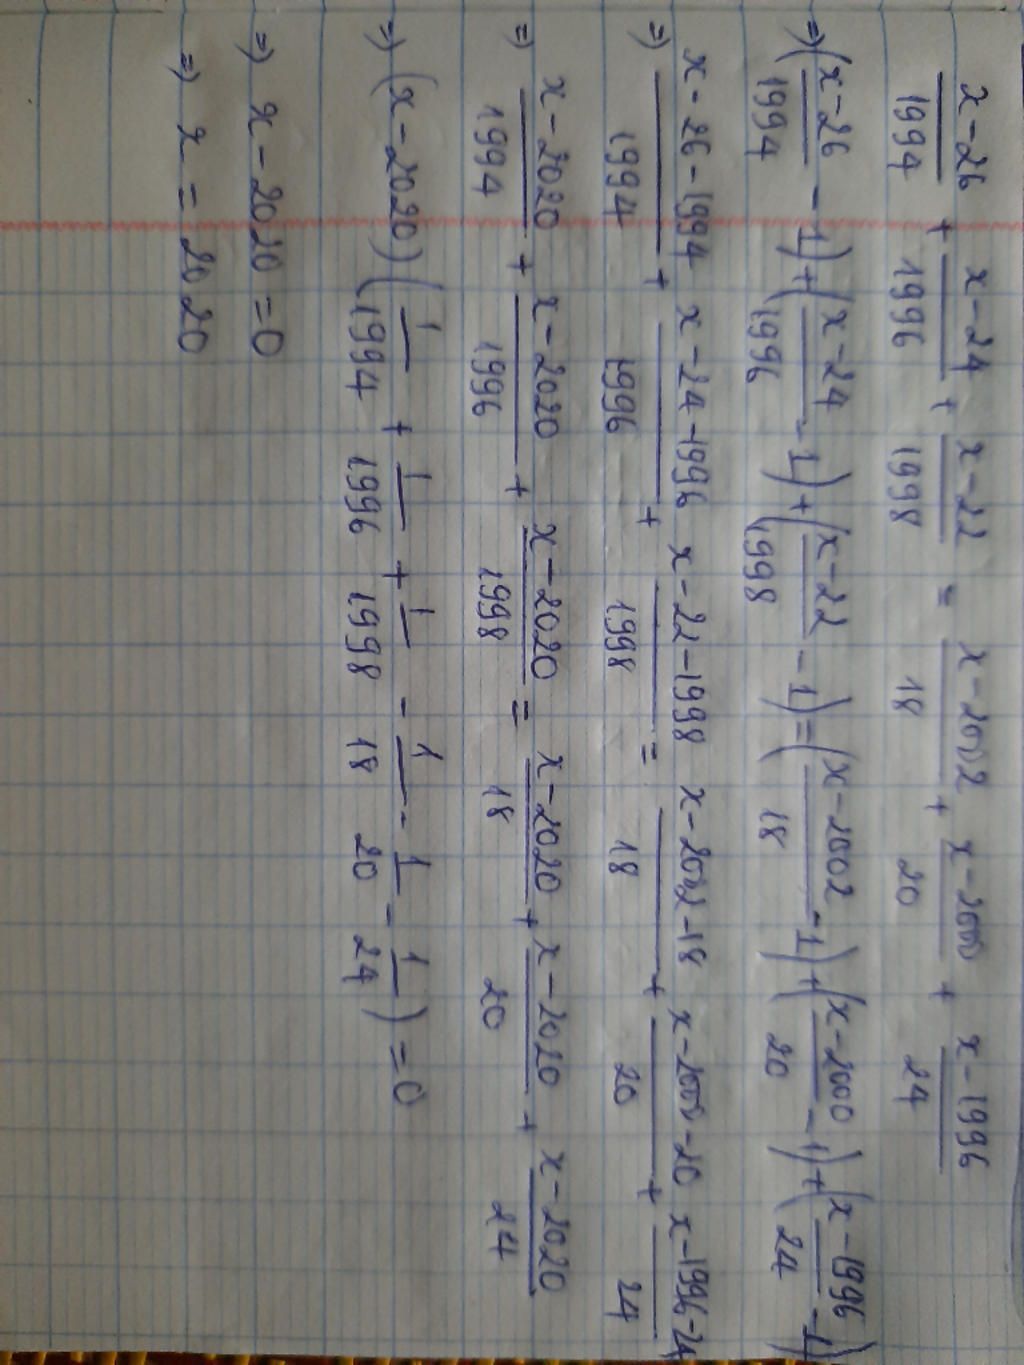 x-26/1994 + x-24/1996 + x-22/1998 = x-2002/18 + x-2000/20 + x-1996/24
=> (x-26/1994 - 1) + (x-24/1996 - 1) + (x-22/1998 - 1) = (x-2002/18 - 1) + (x-2000/20 - 1) + (x-1996/24 - 1)
=> x-26-1994/1994 + x-24-1996/1996 + x-22-1998/1998 = x-2002-18/18 + x-2000-20/20 + x-1996-24/24
=> x-2020/1994 + x-2020/1996 + x-2020/1998 = x-2020/18 + x-2020/20 + x-2020/24
=> (x-2020) (1/1994 + 1/1996 + 1/1998 - 1/18 - 1/20 - 1/24) = 0
=> x-2020 = 0
=> x = 2020